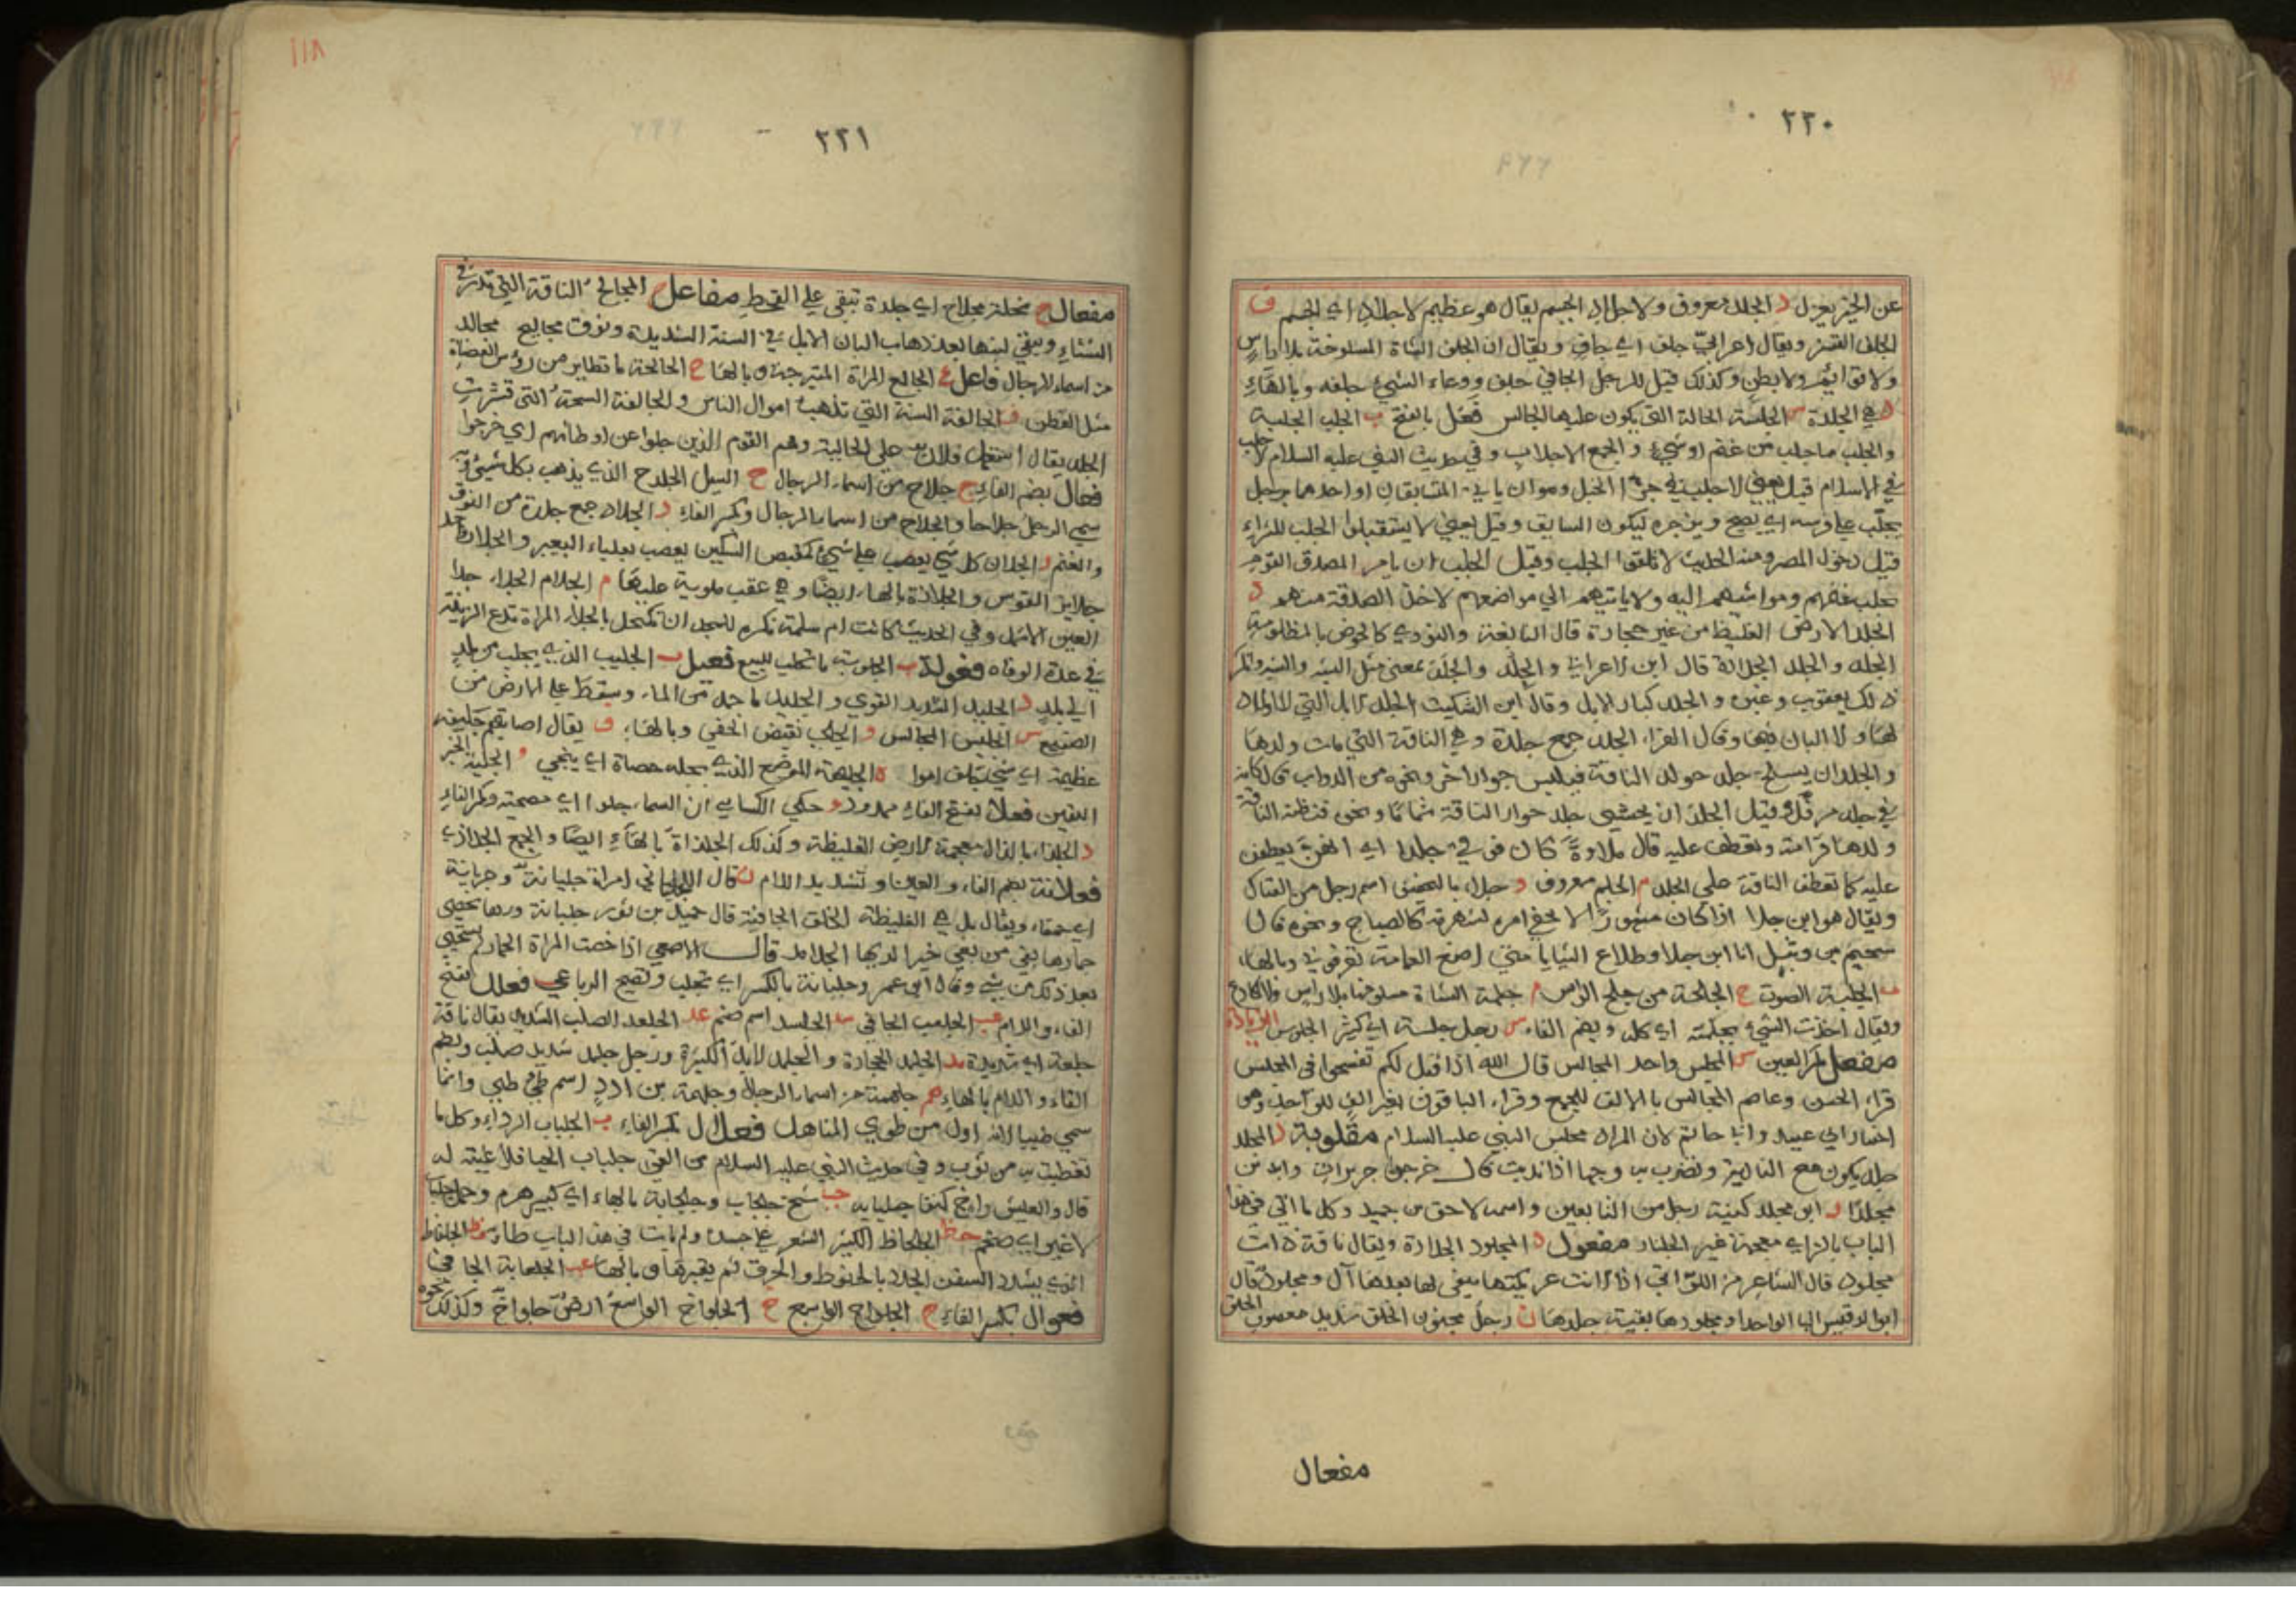 ٢٢٠
عن الخير بعزل د الجلد معروف والاجلاد الجسم يقال هو عظيم الاجلاد اي الجسم ف
الجلف القشر ويقال اعرابي جلف اي جاف ويقال ان الجلف الشاة المسلوخة بلا راس
ولا قوائم ولا بطن وكذلك قيل للرجل الجافي جلف ووعاء الشيء جلفه وبالهاء
د هي الجلدة س الجلسة الحالة التي يكون عليها الجالس فعل بالفتح ب الجلب الجلبة
والجلب ما جلب من غنم او شيء والجمع الاجلاب وفي حديث النبي عليه السلام لا جلب
في الاسلام قيل يعني لا جلب في جري الخيل وهو ان ياتي المتسابقان او احدهما برجل
يجلب على فرسه اي يصيح ويزجره ليكون السابق وقيل يعني لا يستقبلوا الجلب للشراء
قبل دخول المصر ومنه الحديث لا تلقوا الجلب وقيل الجلب ان يامر المصدق القوم
بجلب غنمهم ومواشيهم اليه ولا ياتيهم الي مواضعهم لاخذ الصدقة منهم د
الجلد الارض الغليظ من غير حجارة قال النابغة والنوءي كالحوض بالمظلومة
الجلد والجلد الجلادة قال ابن الاعرابي والجلد والجلد بمعني مثل الشبه والشبه وانكر
ذلك يعقوب وغيره والجلد كبار الابل وقال ابن السكيت الجلد الابل التي لا اولاد
لها ولا البان فيها وقال الفراء الجلد جمع جلدة وهي الناقة التي مات ولدها
والجلد ان يسلخ جلد حوار الناقة فيلبس حوارا اخر ونحوه من الدواب قال كانه
في جلد مرفل وقيل الجلد ان يحشي جلد حوار الناقة ثماما ونحوه فتظنه الناقة
ولدها فرامته وتعطف عليه قال ملاوة كان فوقي جلدا اي الفرن يعطفن
عليه كما تعطف الناقة علي الجلد م الجلم معروف و جلا بالتخفيف اسم رجل من الفتاك
ويقال هو ابن جلا اذا كان مشهورا لا يخفي امره لشهرته كالصباح ونحوه قال
سحيم بن وثيل انا ابن جلا وطلاع الثنايا متي اضع العمامة تعرفوني وبالهاء
ب الجلبة الصوت ح الجلحة من جلح الراس م جلمة الشاة مسلوخها بلا راس ولا اكارع
ويقال اخذت الشيء بجلمته اي كله وبضم الفاء س رجل جلسة اي كثير الجلوس الزيادة
مفعل بكسر العين س المجلس واحد المجالس قال الله اذا قيل لكم تفسحوا في المجلس
قراء الحسن وعاصم المجالس بالالف للجمع وقراء الباقون بغير الف للواحد وهي
اختيار ابي عبيد وابا حاتم لان المراد مجلس النبي عليه السلام مقلوبة د المجلد
جلد يكون مع النادبة وتضرب به وجهها اذا ندبت قال خرجن جريرات وابدين
مجلدا ز ابو مجلز كنية رجل من التابعين واسمه لاحق بن حميد وكل ما اتي في هذا
الباب بالزاي معجمة غير الجلناز مفعول د المجلود الجلادة ويقال ناقة ذات
مجلود قال الشاعر من اللواتي اذا لانت عريكتها يبقي لها بعدها آل ومجلود قال
ابو الدقيس الها الواحدا ومجلودها بقية جلدها ز رجل مجلوز الخلق شديد معصوب الخلق
مفعال
١١٨
٢٢١
مفعال ح نخلة مجلاح اي جلدة تبقي علي القحط مفاعل ح المجالح الناقة التي تدر في
الشتاء ويبقي لبنها بعد ذهاب البان الابل في السنة الشديدة ونوق مجاليح مجالد
من اسماء الرجال فاعل ع الجالع المراة المتبرجة وبالهاء ح الجالحة ما تطاير من رؤس العضاة
مثل القطن ف الجالفة السنة التي تذهب اموال الناس والجالفة السحة التي قشرت
الجلد يقال استعمل فلان علي الجالية وهم القوم الذين جلوا عن اوطانهم اي خرجوا
فعال بضم الفاء ح جلاح من اسماء الرجال ح السيل الجلاح الذي يذهب بكل شيء وبه
سمي الرجل جلاحا والجلاح من اسماء الرجال وبكسر الفاء د الجلاد جمع جلدة من النوق
والغنم ز الجلاز كل شيء يعصب علي شيء كمقبض السكين يعصب بعلباء البعير والجلاز واحد
جلايز القوس والجلازة بالهاء ايضا وهي عقب ملوية عليها م الجلام الجداء جلا
العين الاثمد وفي الحديث كانت ام سلمة تكره للمحد ان تكتحل بالجلاء المراة تدع الزينة
في عدة الوفاه فعولة ب الجلوبة ما يجلب للبيع فعيل ب الجليب الذي يجلب من بلد
الي بلد د الجليد الشديد القوي والجليد ما جمد من الماء وسقط علي الارض من
الصقيع س الجليس المجالس و الجلي نقيض الخفي وبالهاء ف يقال اصابتهم جليفة
عظيمة اي شيء يتلف اموا ه الجليهة الموضع الذي يجله حصاة اي ينحي و الجلية الخبر
اليقين فعلاء بفتح الفاء ممدود و حكي الكسائي ان السماء جلوا اي مصحية وبكسر الفاء
د الجلذاء بالذال معجمة الارض الغليظة وكذلك الجلذاة بالهاء ايضا والجمع الجلاذي
فعلانة بضم الفاء والعين وتشديد اللام ب قال اللحياني امراة جلبانة وجربانة
اي حمقاء ويقال بل هي الغليظة الخلق الجافية قال حميد بن ثور جلبانة ورهاء تخصي
حمارها بفي من بغي خيرا لديها الجلامد قال الاصمعي اذا خصت المراة الحمار لم تستحيي
بعد ذلك من شيء وقال ابو عمر وجلبانة بالكسر اي تجلب وتصيح الرباعي فعلل بفتح
الفاء واللام عب الجلعب الجافي سد الجلسد اسم صنم عد الجلعد الصلب الشديد يقال ناقة
جلعدة اي شديدة مد الجلمد الحجارة والجلمد الابل الكثيرة ورجل جلمد شديد صلب وبضم
الفاء واللام بالهاء هم جلهمة من اسماء الرجال وجلهمة بن ادد اسم طيء طيي وانما
سمي طيا لانه اول من طوي المناهل فعلال بكسر الفاء ب الجلباب الرداء وكل ما
تغطيت به من ثوب وفي حديث النبي عليه السلام من القي جلباب الحيا فلا غيبة له
قال والعيش راخ كنفا جلبابه حب شيخ جلحاب وجلحابة بالهاء اي كبير هرم
لا غير اي ضخم حظ الجلحاظ الكثير الشعر علي جسده ولم يات في هذا الباب ظاء فظ الجلفاظ
الذي يشدد السفن الجدد بالخيوط والخرق ثم يقيرها وبالهاء عب الجلعابة الجافي
فعوال بكسر الفاء ح الجلواح الواسع خ الجلواخ الواسع ارض جلواخ وكذلك نحوه